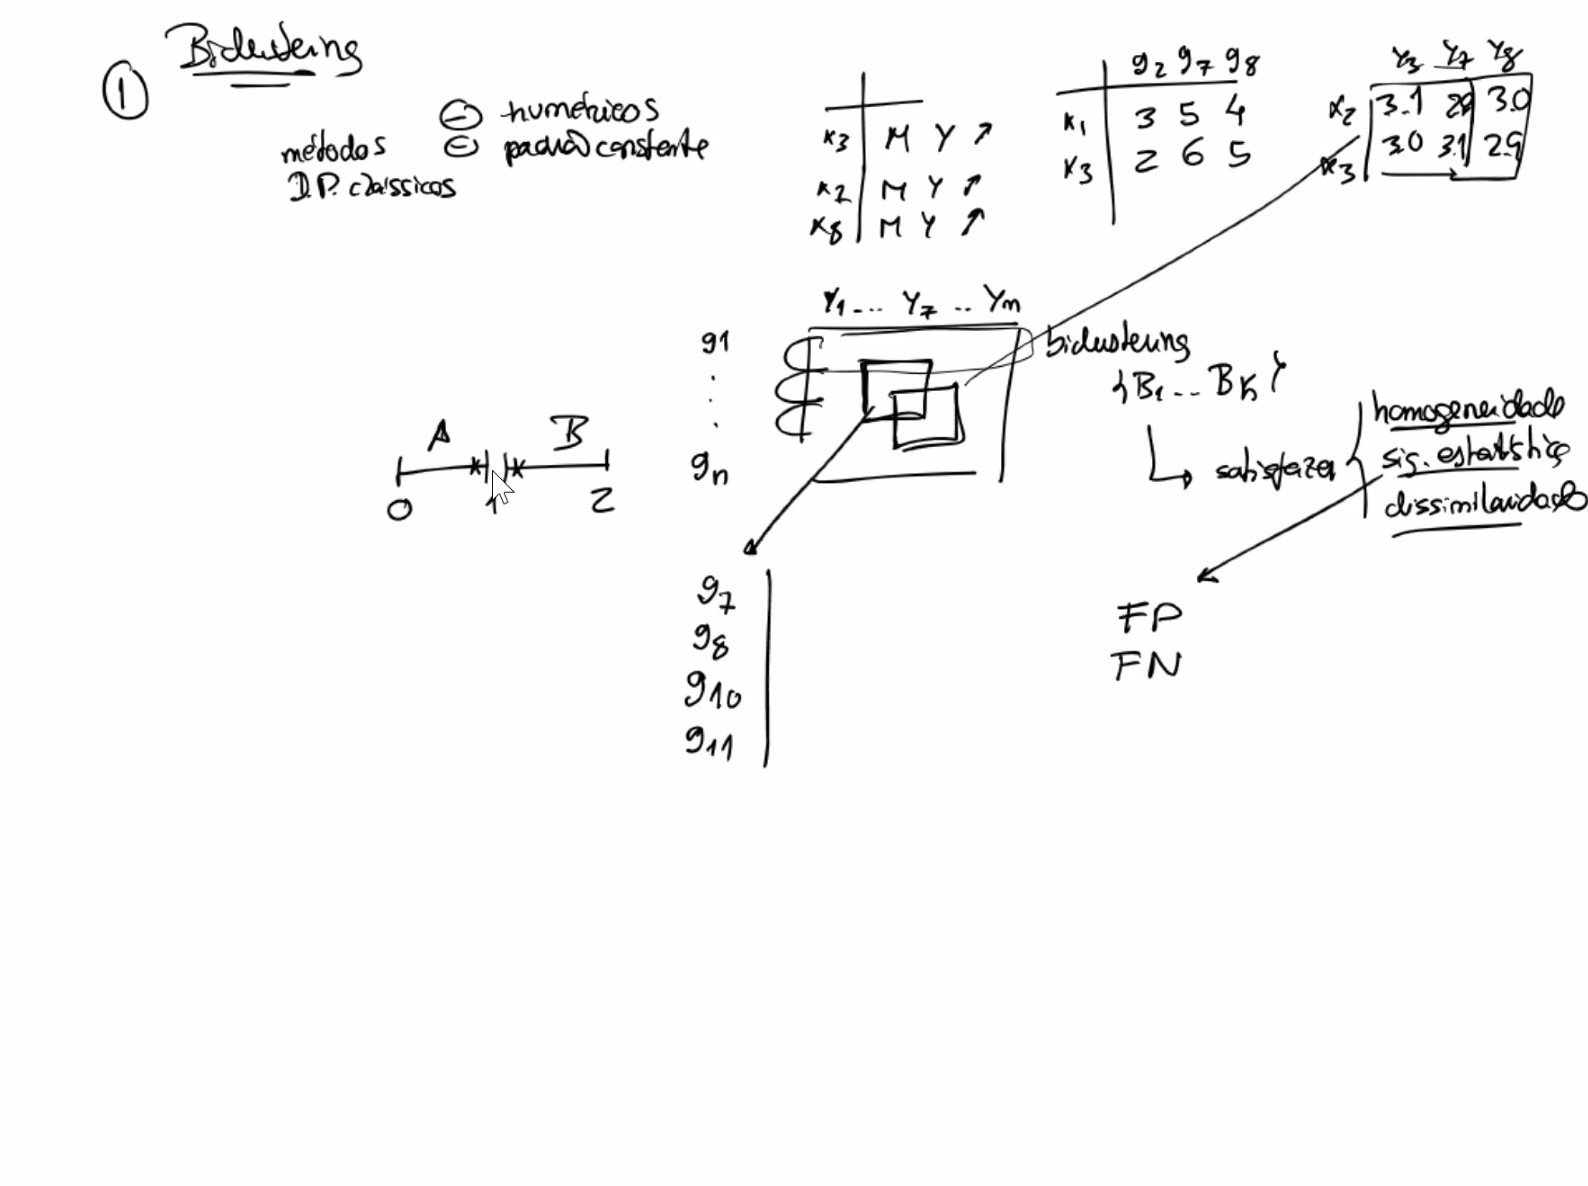 ① Biclustering
⊖ numéricos
métodos ⊖ padrão constante
D.P. clássicos
x3 M Y ↗
x2 M Y ↗
x8 M Y ↗
g2 g7 g8
x1 3 5 4
x3 2 6 5
Y3 Y7 Y8
x2 3.1 29 30
x3 30 31 29
Y1 ... Y7 .. Ym
g1
.
.
.
gn
biclustering
{B1 ... Bk}
satisfazer
homogeneidade
sig. estatística
dissimilaridade
A B
0 1 2
g7
g8
g10
g11
FP
FN